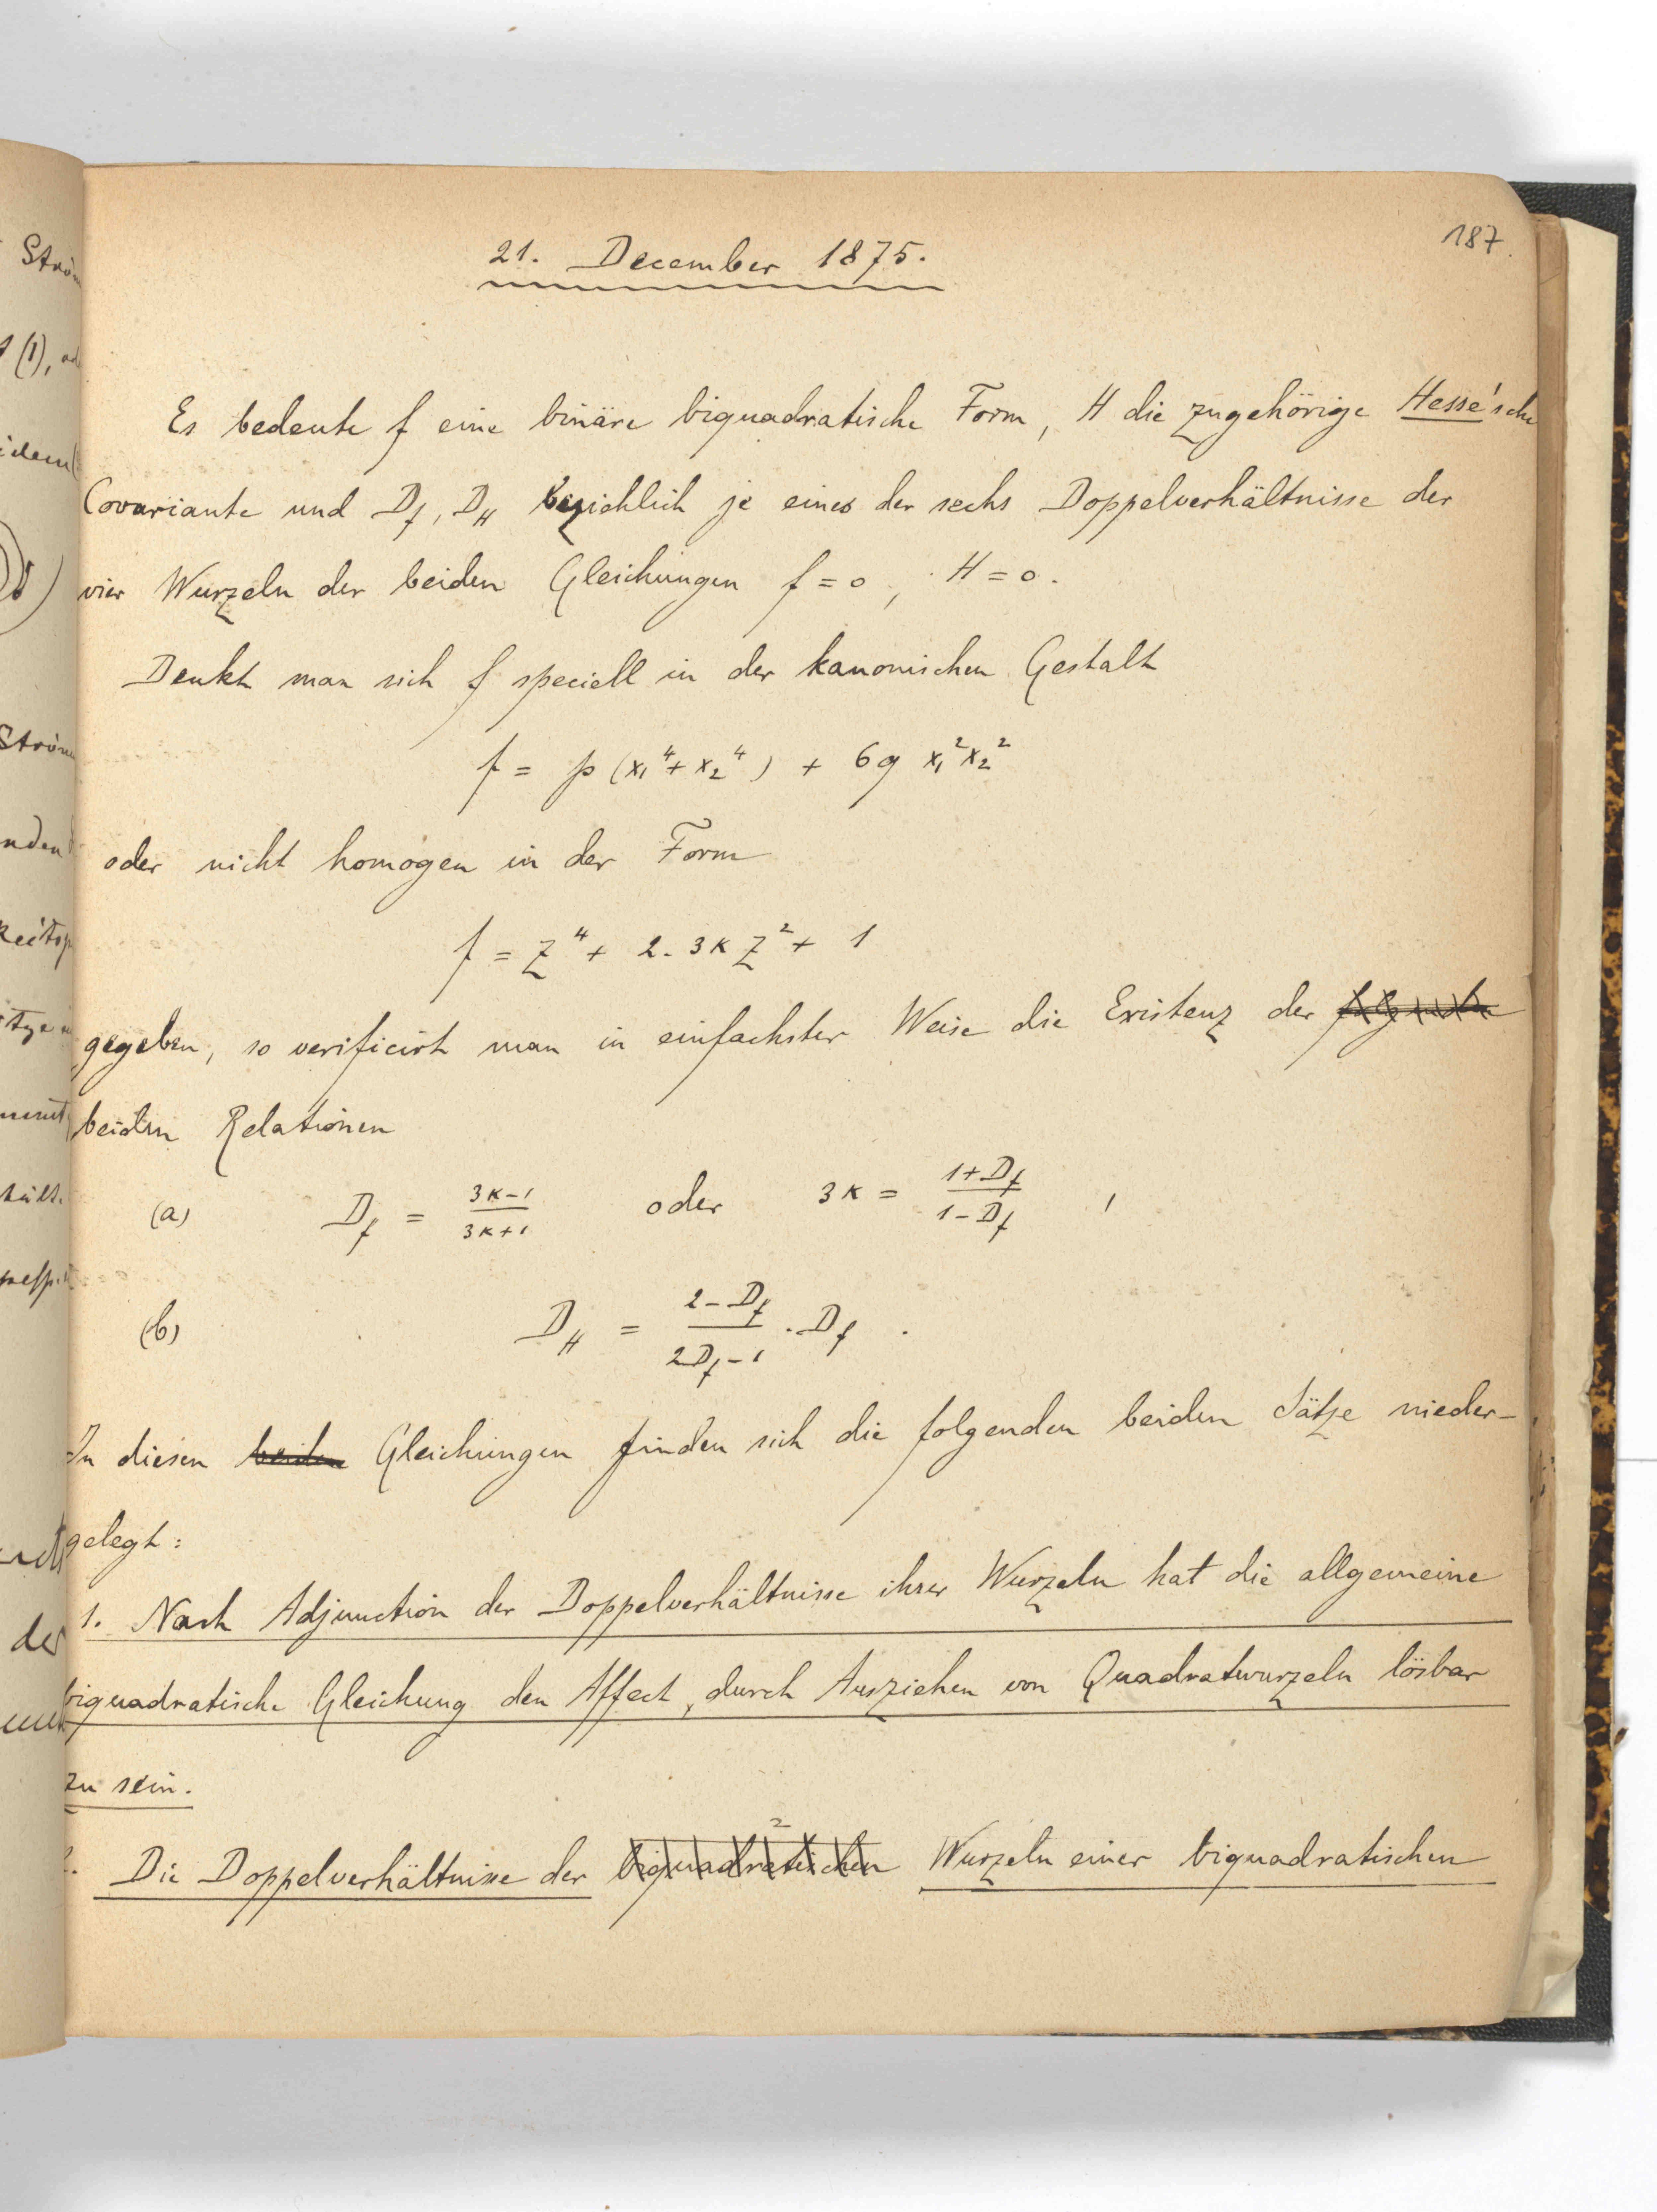 187.
21. December 1875.
Es bedeute f eine binäre biquadratische Form, H die zugehörige Hesse'sche
Covariante und D_f, D_H bezichlich je eines der sechs Doppelverhältnisse der
vier Wurzeln der beiden Gleichungen f = 0, H = 0.
Denkt man sich f speciell in der kanonischen Gestalt
f = p (x₁⁴ + x₂⁴) + 6q x₁² x₂²
oder nicht homogen in der Form
f = z⁴ + 2. 3κ z² + 1
gegeben, so verificirt man in einfachster Weise die Existenz der folgenden
beiden Relationen
(a) D_f = (3κ-1)/(3κ+1) oder 3κ = (1+D_f)/(1-D_f) ,
(b) D_H = (2-D_f)/(2D_f-1) . D_f .
In diesen beiden Gleichungen finden sich die folgenden beiden Sätze nieder-
gelegt:
1. Nach Adjunction der Doppelverhältnisse ihrer Wurzeln hat die allgemeine
biquadratische Gleichung den Affect, durch Ausziehen von Quadratwurzeln lösbar
zu sein.
2. Die Doppelverhältnisse der biquadratischen Wurzeln einer biquadratischen
Ström
(1),
idem
Ström
nden